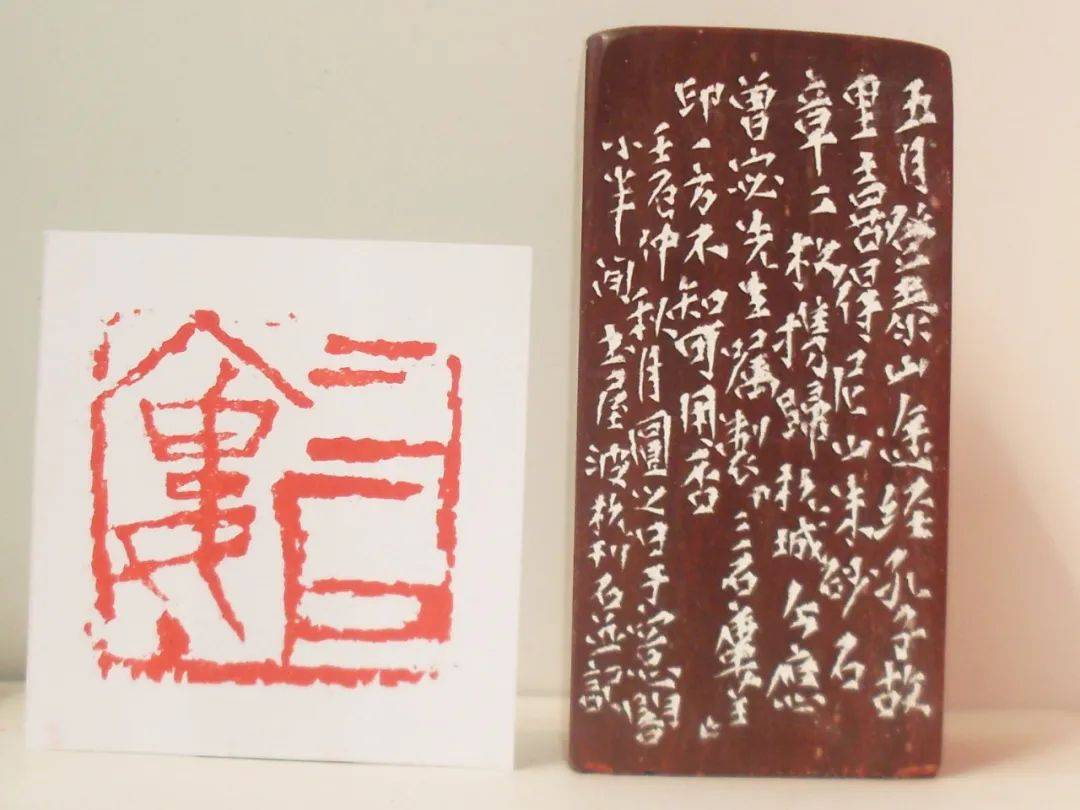 三石廔
五月登泰山途经孔子故
里喜得尼山朱砂石
章二枚携歸杭城今應
曾宓先生嘱製三石廔主
印一方不知可用否
壬辰仲秋月圓之日于
小半间屋波石並記